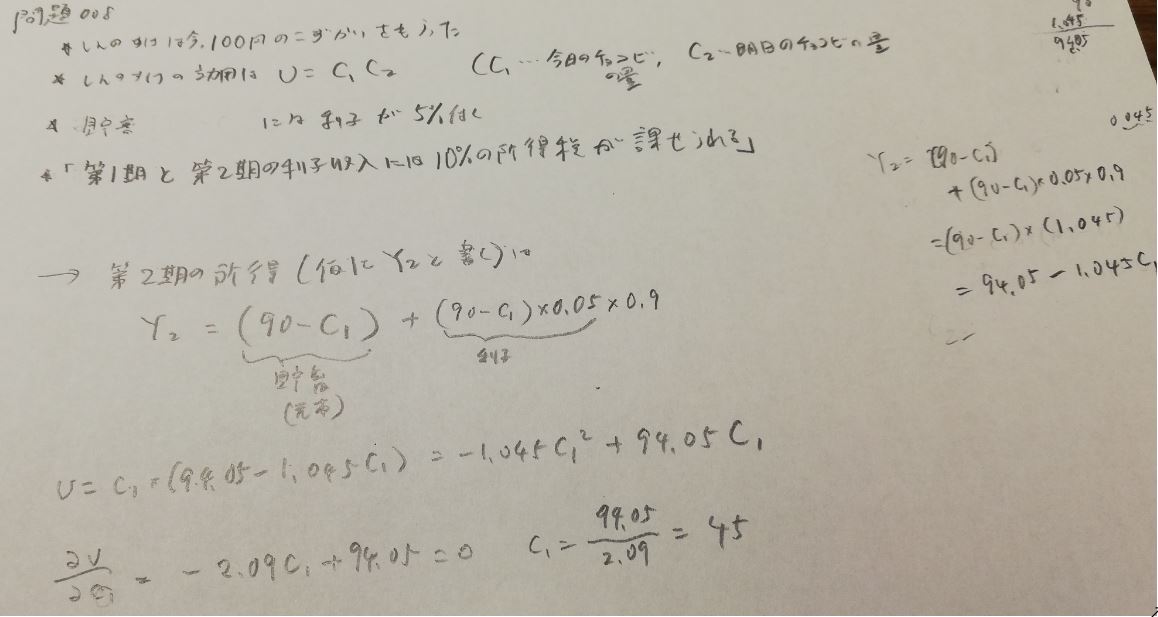 問題008
* しんのすけは今、100円のこずかいをもらった
* しんのすけの効用は U = C₁ C₂ (C₁ … 今日のチョコビの量, C₂ … 明日のチョコビの量
* 貯蓄 には 利子が 5%付く
* 「第1期と第2期の利子収入には10%の所得税が課せられる」
→ 第2期の所得(仮にY₂と書く)は
Y₂ = (90-C₁) + (90-C₁)×0.05×0.9
貯蓄 利子
(元本)
U = C₁×(94.05-1.045C₁) = -1.045C₁² + 94.05C₁
∂U/∂C₁ = -2.09C₁+94.05 = 0 C₁ = 94.05/2.09 = 45
90
1.045
9405
0.045
Y₂ = (90-C₁)
+ (90-C₁)×0.05×0.9
= (90-C₁)×(1.045)
= 94.05 - 1.045C₁